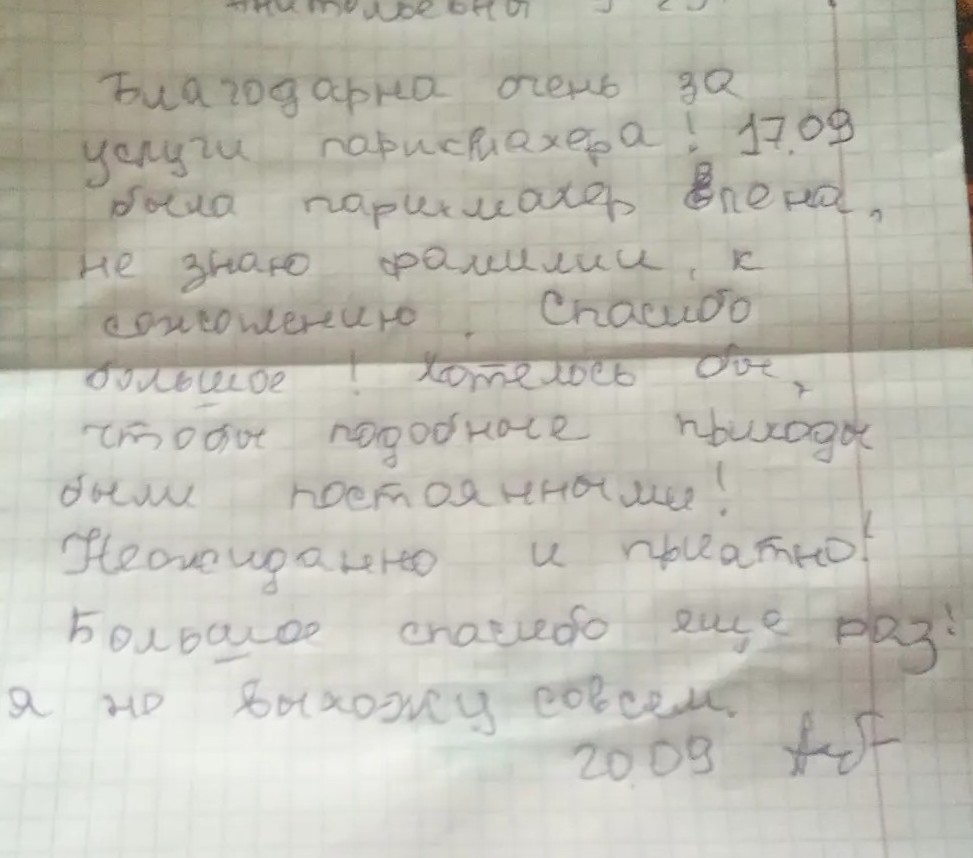 Благодарна очень за
услуги парикмахера! 17.09
была парикмахер Елена,
не знаю фамилии, к
сожалению. Спасибо
большое! Хотелось бы,
чтобы подобные приходы
были постоянными!
Неожиданно и приятно!
Большое спасибо еще раз!
я не выхожу совсем.
20.09